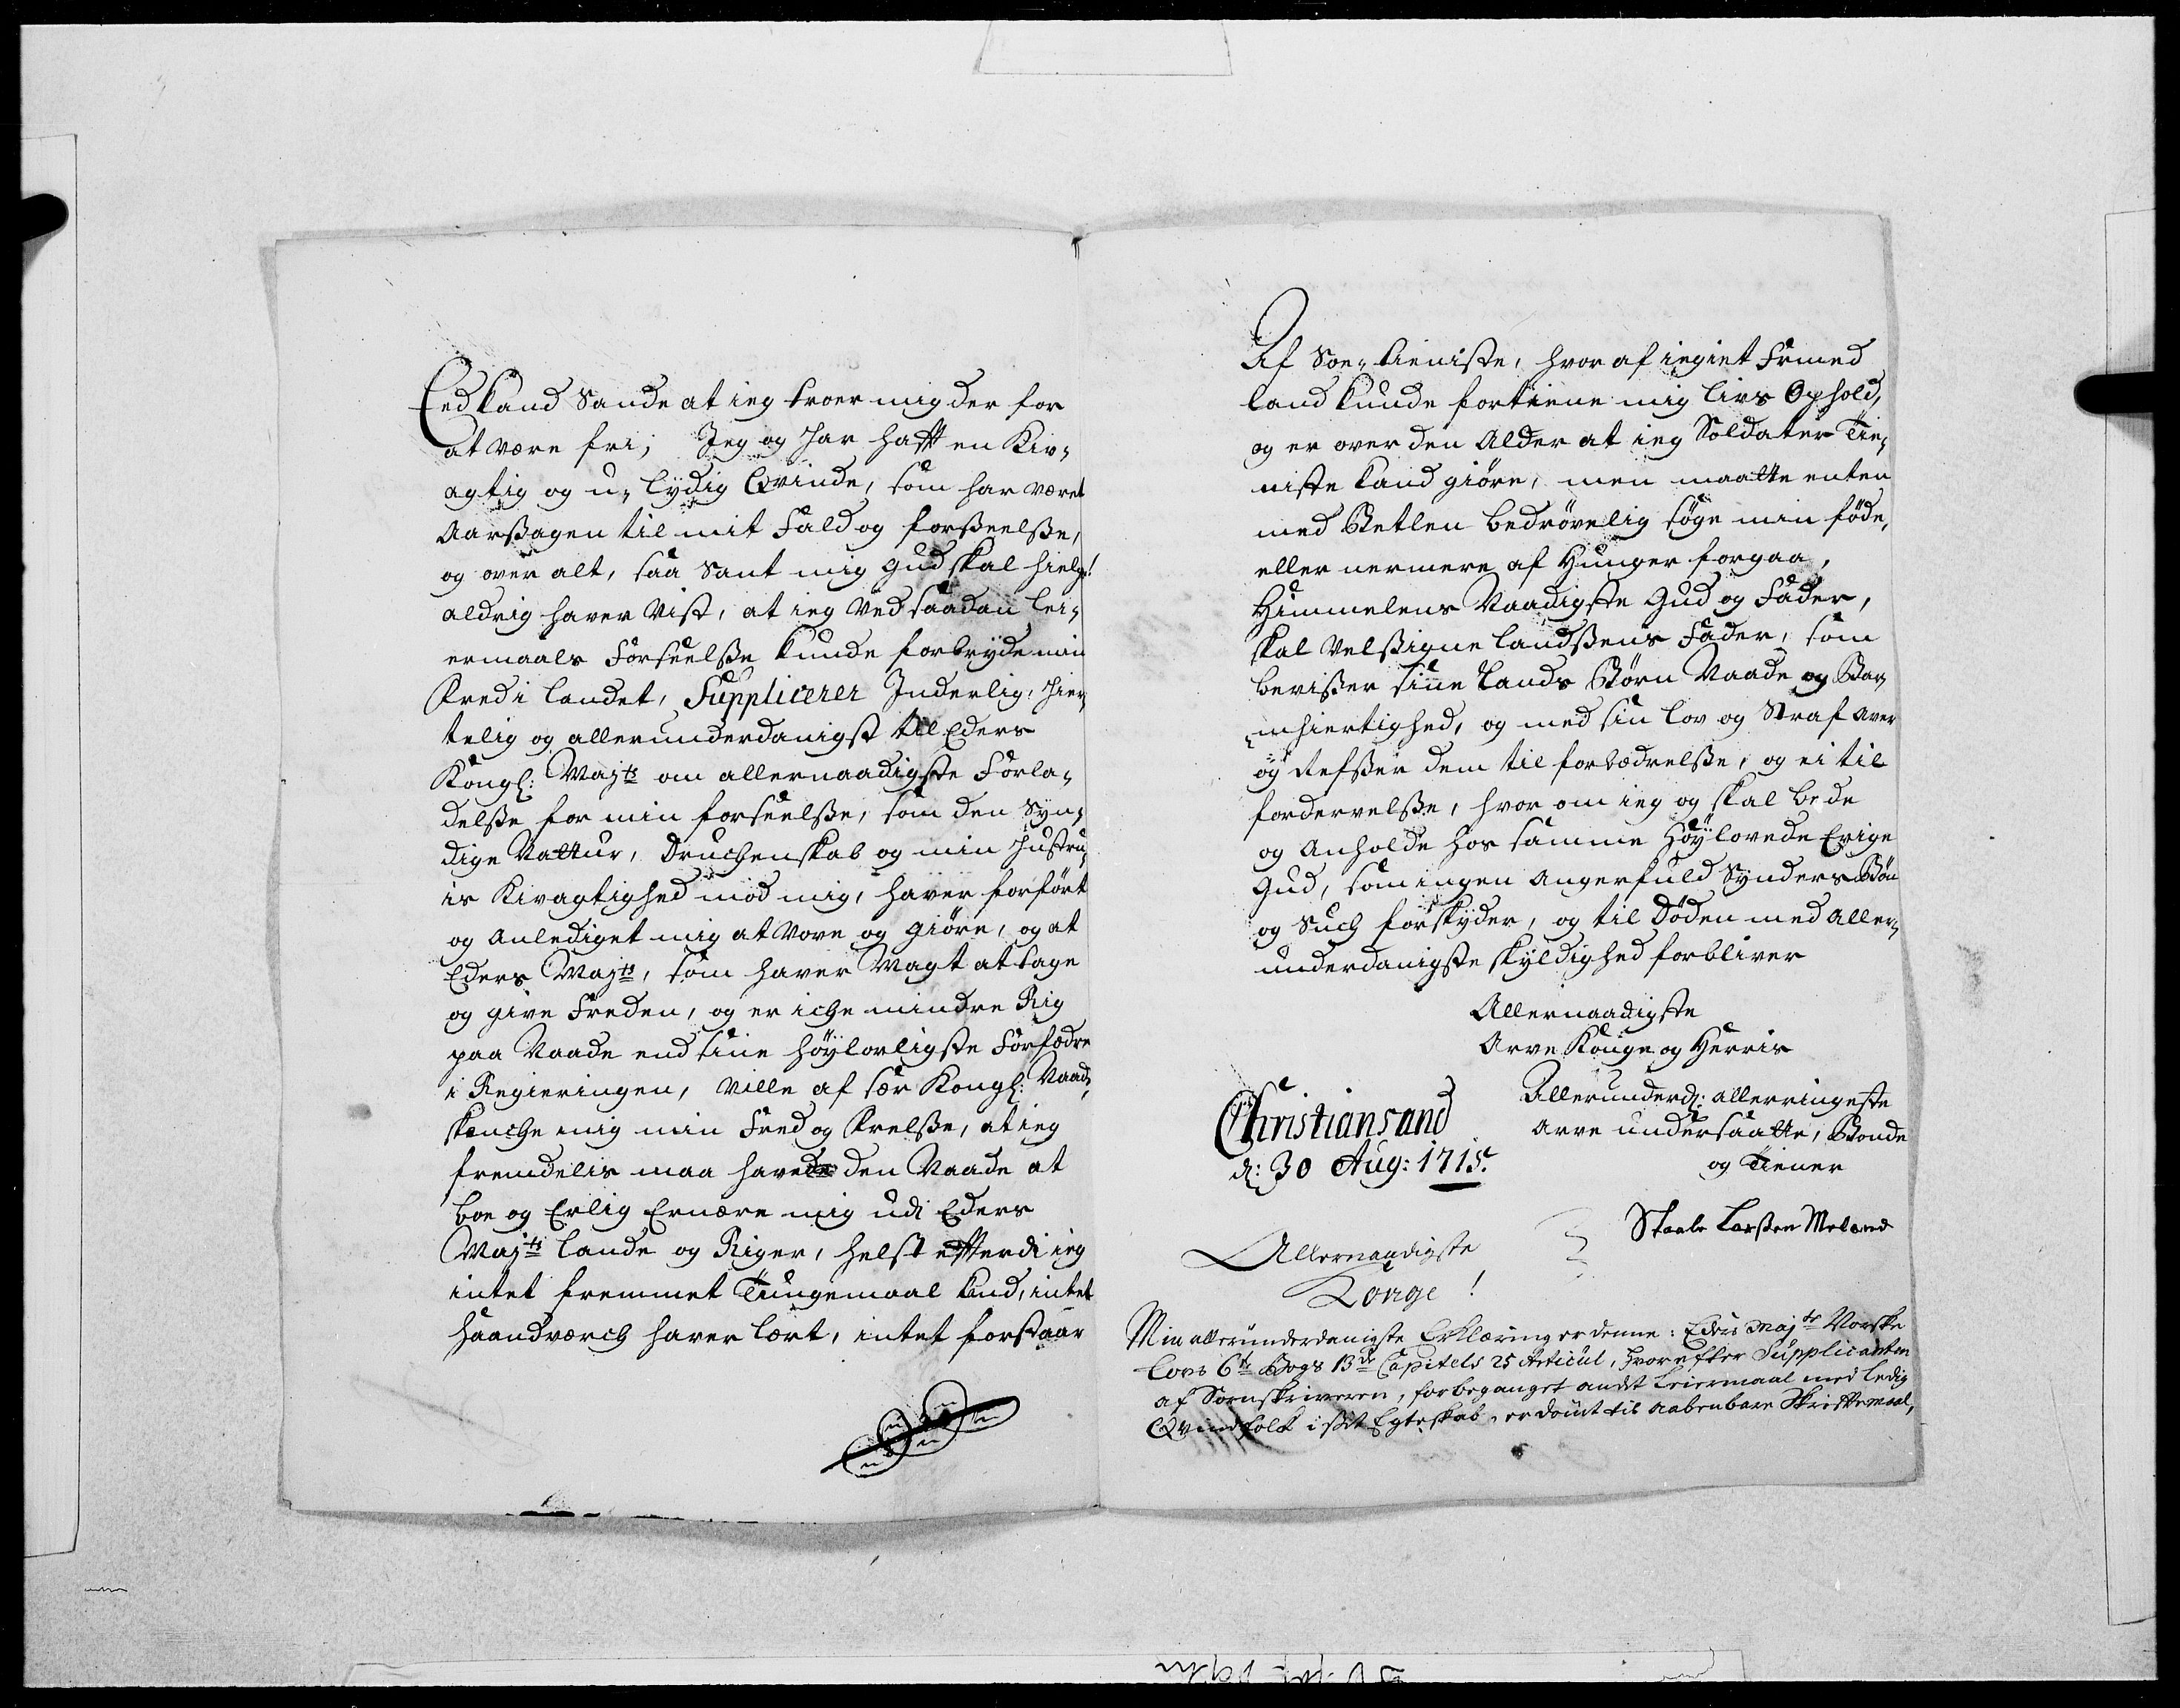 Eed kand Sande at ieg troer mig der for
at være fri; Jeg og har hafft en Kiv-
agtig og u-lydig Qvinde, som har været
Aarsagen til mit Fald og forseelße,
og over alt, saa Sant mig Gud skal hielpe!
aldrig haver vist, at ieg ved saadan Lei-
ermaals Forseelße kunde forbryde min
Fred i landet, Supplicerer Inderlig, hier-
telig og allerunderdanigst til Eders
Kongl: Majts om allernaadigste Forla-
delße for min forseelße, som den Syn-
dige Nattur, Druchenskab og min Hustru-
is Kivagtighed mod mig, haver forført
og Anlediget mig at vove og giøre, og at
Eders Majts, som haver Magt at tage
og give Freden, og er iche mindre Rig
paa Naade end sine høylovligste Forfædre
i Regieringen, ville af sær Kongl: Naade,
skænche mig min Fred og Frelße, at ieg
fremdelis maa have den Naade at
boe og Erlig Ernære mig udi Eders
Majts Lande og Riger, helst efterdi ieg
intet fremmet Tungemaal kand, intet
Haandværch haver lært, intet forstaar
Af Søe-tieniste, hvor af ieg i et Frmed
land kunde fortiene mig livs Ophold,
og er over den Alder at ieg Soldater Tie-
niste kand giøre, men maatte enten
med Betlen bedrøvelig søge min føde,
eller nermere af Hunger forgaa,
Himmelens Naadigste Gud og Fader,
skal Velßigne landßens Fader, som
bevißer sine Lands Børn Naade og Bar-
mhiertighed, og med sin lov og Straf aver
og Refßer dem til forbædrelße, og ei til
fordervelße, hvor om ieg og skal bede
og Anholde hos samme Høylovede Evige
Gud, som ingen Angerfuld Synders Bøn
og Such forskyder, og til Døden med Aller-
underdanigste skyldighed forbliver
Allernaadigste
Arve Konge og Herris
Allerunderd: allerringeste
Arve undersaatte, Bonde
og Tiener
Christiansand
d: 30 Aug: 1715.
Staale Larßen Meland
Allernaadigste
Konge!
Min allerunderdanigste Erklæring er denne: Eders Majts Norske
Lovs 6te Bogs 13de Capitels 25 Articul, hvorefter Supplicanten
af Sorenskriveren, for beganget andet Leiermaal med ledig
Qvindfolk i sit Egteskab, er dømt til aabenbare Skriftemaal,